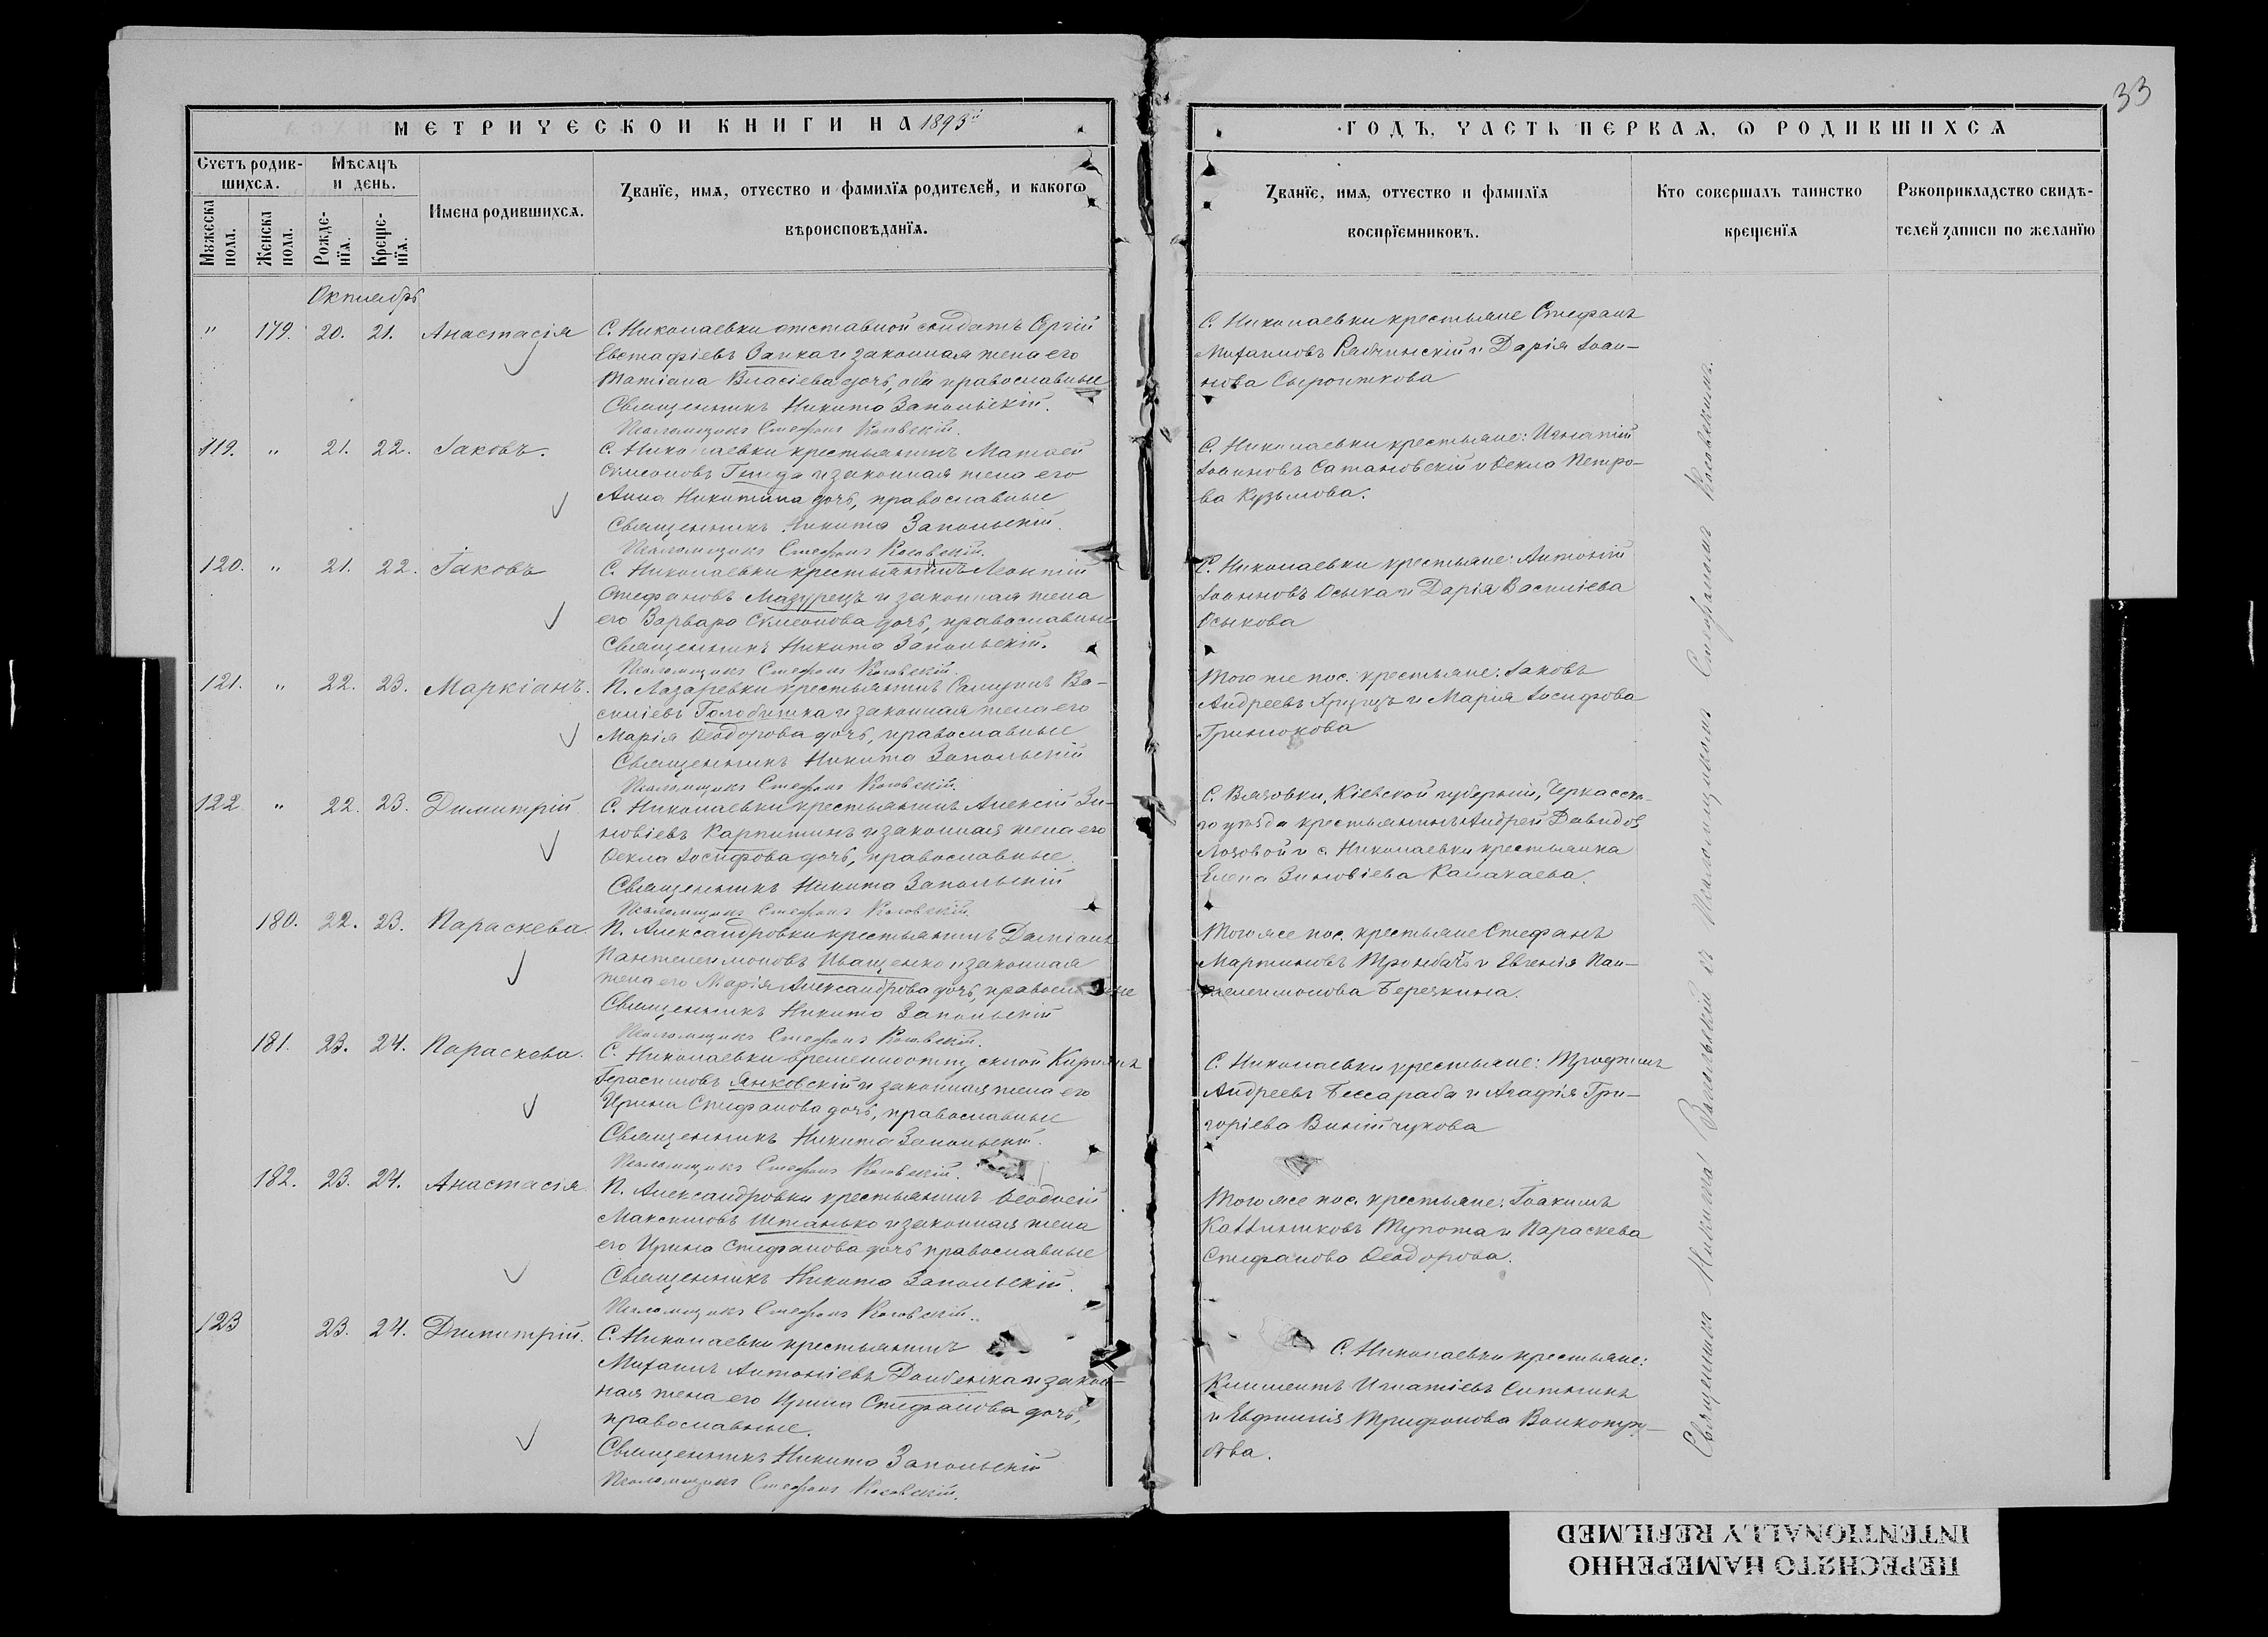 33
МЕТРИЧЕСКОЙ КНИГИ НА 1895й
ГОДЪ, ЧАСТЬ ПЕРВАЯ, Ѡ РОДИВШИХСЯ
Счетъ родившихся.
Мѣсяцъ и день.
Имена родившихся.
Званїе, имя, отчество и фамилїя родителей, и какогѡ
вѣроисповѣданїя.
Званїе, имя, отчество и фамилїя
воспрїемниковъ.
Кто совершалъ таинство
крещенїя
Рукоприкладство свидѣ-
телей записи по желанїю
Мужеска пола.
Женска пола.
Рожде-нїя.
Креще-нїя.
Октябрь
" 179. 20. 21. Анастасія
С. Николаевки отставной солдатъ Сергій
Евстафіевъ Заика и законная жена его
Татіана Власіева дочь, оба православные
Священникъ Никита Запольскій.
Псаломщикъ Стефанъ Косовскій.
С. Николаевки крестьяне Стефанъ
Михаиловъ Рабчинскій и Дарія Іоан-
нова Сыроиткова
119. " 21. 22. Іаковъ.
С. Николаевки крестьянинъ Матѳей
Симеоновъ и законная жена его
Анна Никитина дочь, православные
Священникъ Никита Запольскій.
Псаломщикъ Стефанъ Косовскій.
С. Николаевки крестьяне: Игнатій
Іоанновъ Сатановскій и Ѳекла Петро-
ва Кузьмова.
120. " 21. 22. Іаковъ
С. Николаевки крестьянинъ Леонтій
Стефановъ Мазурецъ и законная жена
его Варвара Симеонова дочь, православные
Священникъ Никита Запольскій.
Псаломщикъ Стефанъ Косовскій.
С. Николаевки крестьяне: Антоній
Іоанновъ Осыка и Дарія Василіева
Осыкова
121. " 22. 23. Маркіанъ.
П. Лазаревки крестьянинъ Самуилъ Ва-
силіевъ и законная жена его
Марія Ѳеодорова дочь, православные
Священникъ Никита Запольскій
Псаломщикъ Стефанъ Косовскій.
Того же пос. крестьяне: Іаковъ
Андреевъ и Марія Іосифова
Гринюкова
122 " 22. 23. Димитрій
С. Николаевки крестьянинъ Алексій Зи-
новіевъ Карпитинъ и законная жена его
Ѳекла Іосифова дочь, православные.
Священникъ Никита Запольскій
Псаломщикъ Стефанъ Косовскій.
С. Вязовки, Кіевской губерніи, Черкасска-
го уѣзда крестьянинъ Андрей Давидов
Лозовой и с. Николаевки крестьянка
Елена Зиновіева Калакаева.
180. 22. 23. Параскева
П. Александровки крестьянинъ Даміанъ
Пантелеимоновъ Иващенко и законная
жена его Марія Александрова дочь, православные
Священникъ Никита Запольскій
Псаломщикъ Стефанъ Косовскій.
Того же пос. крестьяне Стефанъ
Мартиновъ Тромбачъ и Евгенія Пан-
телеимонова Березкина.
181. 23. 24. Параскева.
С. Николаевки временноотпускной Кириллъ
Герасимовъ Янковскій и законная жена его
Ирина Стефанова дочь, православные
Священникъ Никита Запольскій.
Псаломщикъ Стефанъ Косовскій.
С. Николаевки крестьяне: Трофимъ
Андреевъ Бессараба и Агафія Гри-
горіева Винійчукова
182. 23. 24. Анастасія
П. Александровки крестьянинъ Ѳеодосій
Максимовъ Штанько и законная жена
его Ирина Стефанова дочь православные
Священникъ Никита Запольскій.
Псаломщикъ Стефанъ Косовскій.
Того же пос. крестьяне: Іоакимъ
Каллиниковъ Тупота и Параскева
Стефанова Ѳеодорова.
123 23. 24. Димитрій.
С. Николаевки крестьянинъ
Михаилъ Антоніевъ Довбенка и закон-
ная жена его Ирина Стефанова дочь,
православные.
Священникъ Никита Запольскій
Псаломщикъ Стефанъ Косовскій.
С. Николаевки крестьяне:
Климентъ Игнатіевъ Ситникъ
и Евфимія Трифонова
Священникъ Никита Запольскій съ Псаломщикомъ Стефаномъ Косовскимъ.
ПЕРЕСНЯТО НАМЕРЕННО
INTENTIONALLY REFILMED